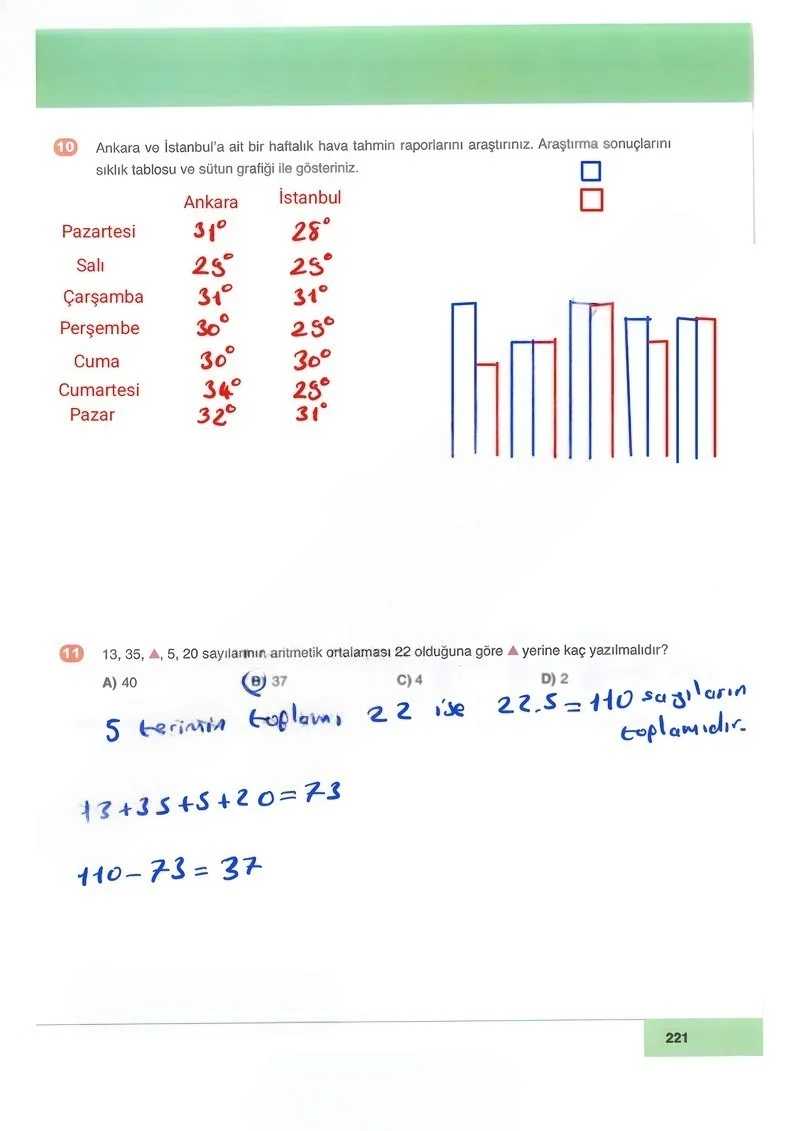 10 Ankara ve İstanbul'a ait bir haftalık hava tahmin raporlarını araştırınız. Araştırma sonuçlarını
sıklık tablosu ve sütun grafiği ile gösteriniz.
Ankara İstanbul
Pazartesi 31° 28°
Salı 29° 29°
Çarşamba 31° 31°
Perşembe 30° 29°
Cuma 30° 30°
Cumartesi 34° 29°
Pazar 32° 31°
11 13, 35, ▲, 5, 20 sayılarının aritmetik ortalaması 22 olduğuna göre ▲ yerine kaç yazılmalıdır?
A) 40 B) 37 C) 4 D) 2
5 terimin toplamı 22 ise 22.5=110 sayıların
toplamıdır.
13+35+5+20=73
110-73=37
221